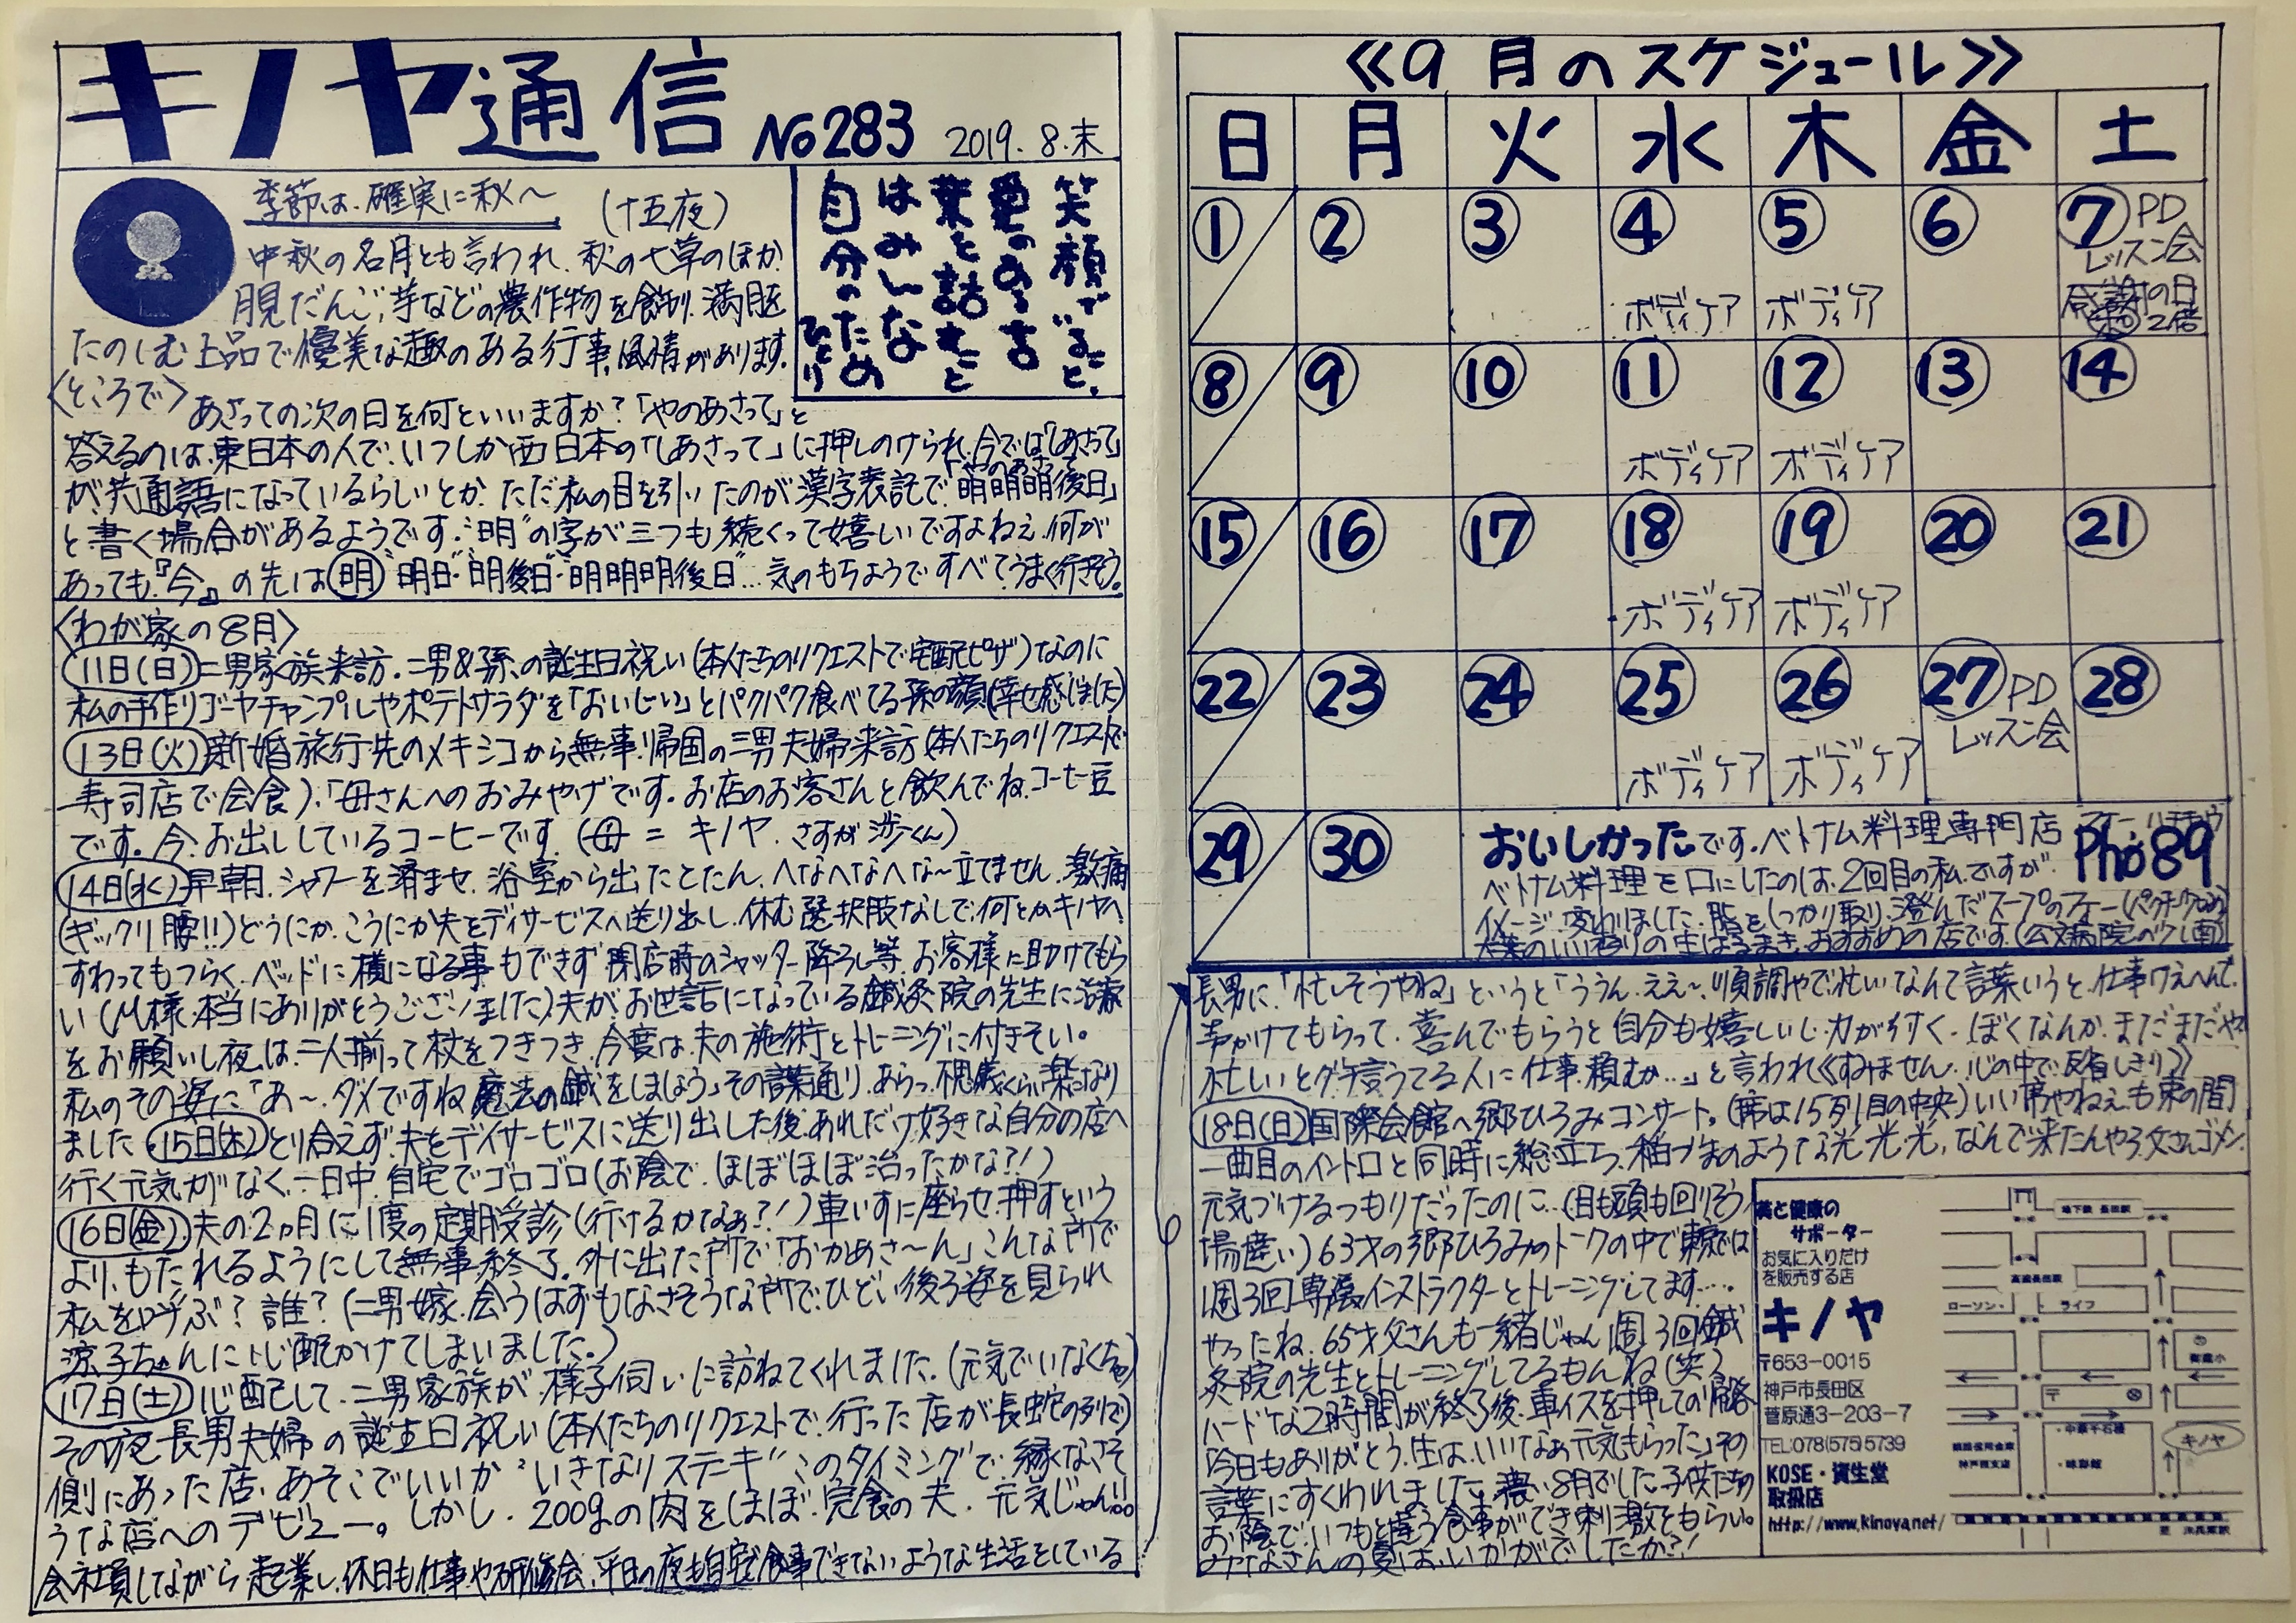 キノヤ通信 No283 2019.8.末
季節は、確実に秋〜 (十五夜)
中秋の名月とも言われ、秋の七草のほか
月見だんご、芋などの農作物を飾り、満月を
たのしむ上品で優美な趣のある行事、風情があります。
笑顔でいること、
愛のある言
葉を話すこと
はみんな
自分のため
ひとり
〈ところで〉あさっての次の日を何といいますか？「やのあさって」と
答えるのは、東日本の人で、いつしか西日本の「しあさって」に押しのけられ、今では「しあさって」
が共通語になっているらしいとか。ただ私の目を引いたのが漢字表記で「明明明後日」
と書く場合があるようです。"明"の字が三つも続くって嬉しいですよねぇ、何が
あっても『今』の先は明 "明日"・"明後日"・"明明明後日"…気のもちようですべてうまく行きそう。
〈わが家の8月〉
11日(日) 二男家族来訪。二男&孫の誕生日祝い(本人たちのリクエストで宅配ピザ)なのに
私の手作りゴーヤチャンプルやポテトサラダを「おいしい」とパクパク食べてる孫の顔(幸せ感じました)
13日(火) 新婚旅行先のメキシコから無事帰国の三男夫婦来訪(本人たちのリクエストで
寿司店で会食)、「母さんへのおみやげです。お店のお客さんと飲んでね、コーヒー豆
です。今、お出ししているコーヒーです。(母 = キノヤ、さすが渉くん)
14日(水) 早朝、シャワーを済ませ、浴室から出たとたん、へなへなへな〜立てません、激痛
(ギックリ腰!!)どうにか、こうにか夫をデイサービスへ送り出し、休む選択肢なしで、何とかキノヤへ
すわってもつらく、ベッドに横になる事もできず閉店時のシャッター降ろし等、お客様に助けてもら
い(M様、本当にありがとうございました)夫がお世話になっている鍼灸院の先生に治療
をお願いし夜は二人揃って杖をつきつき、今度は、夫の施術とトレーニングに付きそい。
私のその姿に「あ〜、ダメですね魔法の鍼をしましょう」その言葉通り、あらっ、不思議くらい楽になり
ました。15日(木) とり合えず夫をデイサービスに送り出した後、あれだけ好きな自分の店へ
行く元気がなく、一日中、自宅でゴロゴロ(お陰で、ほぼほぼ治ったかな?!)
16日(金) 夫の2ヵ月に1度の定期受診(行けるかなぁ?!)車いすに座らせ押すという
より、もたれるようにして無事終了。外に出た所で「おかあさ〜ん」こんな所で
私を呼ぶ？誰？(二男嫁、会うはずもなさそうな所で、ひどい後ろ姿を見られ
涼子ちゃんに心配かけてしまいました。)
17日(土) 心配して、二男家族が、様子伺いに訪ねてくれました。(元気でいなくちゃ)
その夜、長男夫婦の誕生日祝い(本人たちのリクエストで、行った店が長蛇の列で)
側にあった店、あそこでいいか"いきなりステーキ"このタイミングで、縁なさそ
うな店へのデビュー。しかし、200gの肉をほぼ完食の夫、元気じゃん!!
会社員しながら起業し、休日も仕事や研修会、平日の夜も自宅で食事できないような生活をしている
≪9月のスケジュール≫
日 月 火 水 木 金 土
1 2 3 4 ボディケア 5 ボディケア 6 7 PDレッスン会 感謝の日 2倍
8 9 10 11 ボディケア 12 ボディケア 13 14
15 16 17 18 ボディケア 19 ボディケア 20 21
22 23 24 25 ボディケア 26 ボディケア 27 PDレッスン会 28
29 30
おいしかったです。ベトナム料理専門店 Pho89
ベトナム料理を口にしたのは、2回目の私ですが、
イメージ変わりました。脂をしっかり取り、澄んだスープのフォー
のいい香りの生はるまき、おすすめの店です。
長男に「忙しそうやね」というと「ううん、ええ〜、順調やで、忙しいなんて言葉いうと、仕事けえへんで、
声かけてもらって、喜んでもらうと自分も嬉しいし、力が付く。ぼくなんか、まだまだや
忙しいとグチ言うてる人に仕事、頼むか…」と言われ≪すみません、心の中で、反省しきり≫
18日(日) 国際会館へ郷ひろみコンサート。(席は15列目の中央)いい席やねぇも束の間
一曲目のイントロと同時に総立ち、稲づまのような光、光、光、なんで来たんやろ、父さんゴメン
元気づけるつもりだったのに…(目も頭も回りそう
場違い)63才の郷ひろみのトークの中で東京では
週3回専属インストラクターとトレーニングしてます…
やったね、65才父さんも一緒じゃん、週3回鍼
灸院の先生とトレーニングしてるもんね(笑)
ハードな2時間が終了後、車イスを押しての帰路
「今日もありがとう、生は、いいなぁ元気もらった」その
言葉にすくわれました。濃い8月でした。子供たちの
お陰で、いつもと違う食事ができ刺激をもらい。
みなさんの夏は、いかがでしたか?!
美と健康の
サポーター
お気に入りだけ
を販売する店
キノヤ
〒653-0015
神戸市長田区
菅原通3-203-7
TEL:078(575)5739
KOSE・資生堂
取扱店
http://www.kinoya.net/
地下鉄 長田駅
高速長田駅
ローソン ライフ
キノヤ